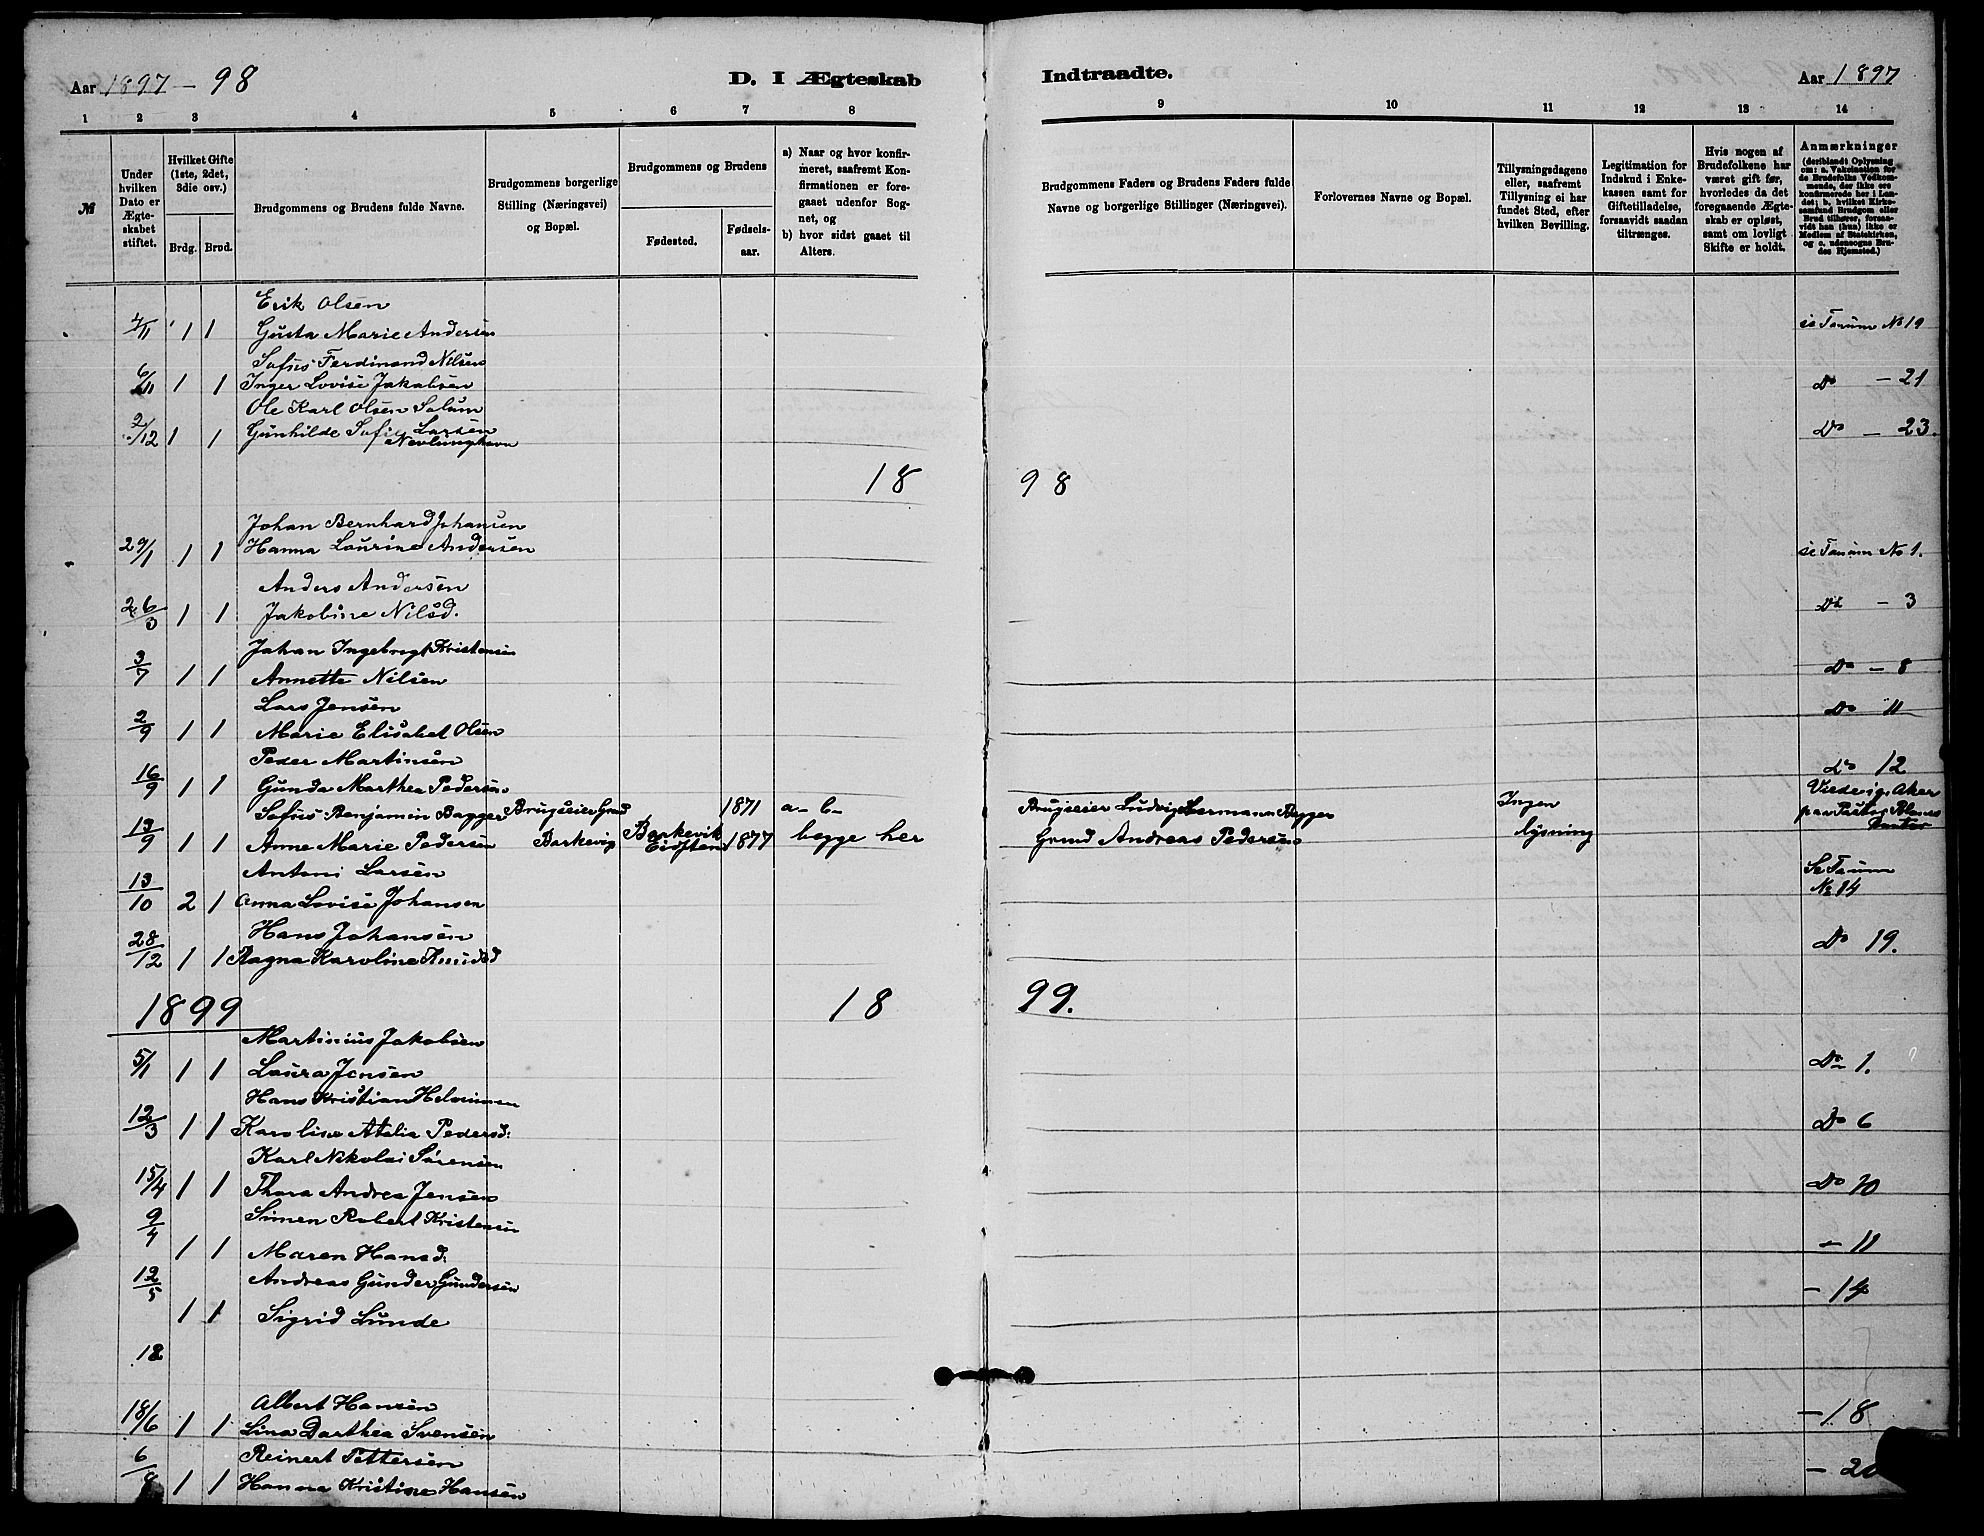 Aar 1897 - 98
D. I Ægteskab
Indtraadte.
Aar 1897
1 2 3 4 5 6 7 8 9 10 11 12 13 14
№
Under hvilken Dato er Ægteskabet stiftet.
Hvilket Gifte (1ste, 2det, 3die osv.)
Brdg. Brud.
Brudgommens og Brudens fulde Navne.
Brudgommens borgerlige Stilling (Næringsvei) og Bopæl.
Brudgommens og Brudens
Fødested.
Fødselsaar.
a) Naar og hvor konfirmeret, saafremt Konfirmationen er foregaaet udenfor Sognet, og
b) hvor sidst gaaet til Alters.
Brudgommens Faders og Brudens Faders fulde Navne og borgerlige Stillinger (Næringsvei).
Forlovernes Navne og Bopæl.
Tillysningsdagene eller, saafremt Tillysning ei har fundet Sted, efter hvilken Bevilling.
Legitimation for Indskud i Enkekassen samt for Giftetilladelse, forsaavidt saadan tiltrænges.
Hvis nogen af Brudefolkene har været gift før, hvorledes da det foregaaende Ægteskab er opløst, samt om lovligt Skifte er holdt.
Anmærkninger
(deriblandt Oplysning om: a. Vakcination for de Brudefolks Vedkommende, der ikke ere konfirmerede her i Landet; b. hvilket Kirkesamfund Brudgom eller Brud tilhører, forsaavidt han (hun) ikke er Medlem af Statskirken, og c. udensogns Brudes Hjemsted.)
Erik Olsen
4/11 1 1 Gusta Marie Andersen se Tanum No 19
Sofus Ferdinand Nilsen
6/11 1 1 Inger Lovise Jakobsen Do - 21
Ole Karl Olsen Solum
2/12 1 1 Gunhilde Sofie Larsen Nevlunghavn Do - 23.
18 98
Johan Bernhard Johansen
29/1 1 1 Hanna Laurine Andersen se Tanum No 1.
Anders Andersen
26/3 1 1 Jakobine Nilsd. Do - 3
Johan Ingebregt Kristensen
3/7 1 1 Annette Nilsen Do - 8
Lars Jensen
2/9 1 1 Marie Elisabet Olsen Do 11
Peder Martinsen
16/9 1 1 Gunda Marthea Pedersen Do 12
Sofus Benjamin Bagger Brugseier Grd 1871 a- b- Brugseier Ludvig Hermann Bagger Ingen Viede i Aker
13/9 1 1 Anne Marie Pedersen Barkevig Barkevik Eidsten 1877 begge her Grmd Andreas Pedersen lysning
Antoni Larsen Se Tanum
13/10 2 1 Anna Lovise Johansen No 14
Hans Johansen
28/12 1 1 Ragna Karoline Do 19.
1899 18 99.
Martinius Jakobsen
5/1 1 1 Laura Jensen Do 1.
Hans Kristian
12/3 1 1 Karoline Atalia Pedersd. Do 6
Karl Nikolai Sørensen
15/4 1 1 Thora Andrea Jensen Do 10
9/4 Simen Robert Kristensen
1 1 Maren Hansd. - 11
12/5 Andreas Gunder Gundersen
1 1 Sigrid Lunde - 14
18
Albert Hansen
18/6 1 1 Lina Dorthea Svensen - 18
Reinert Pettersen
6/8 1 1 Hanna Kristine Hansen - 20